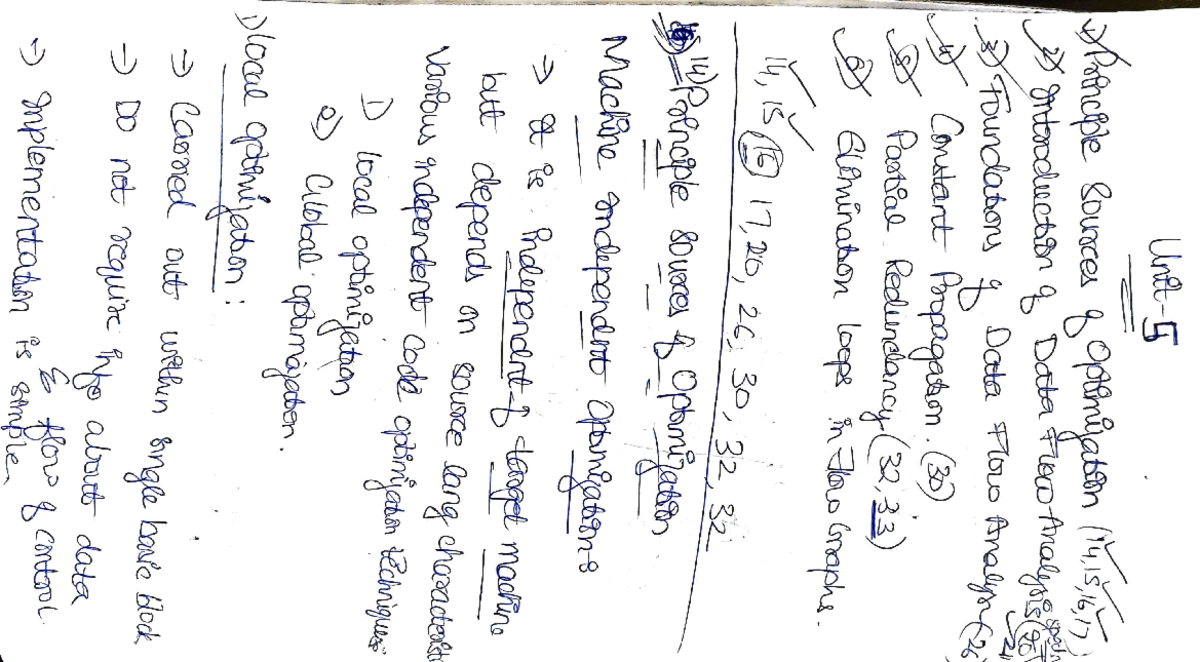 Unit-5
1) Principle Sources of Optimization (14,15,16,17)
2) Introduction of Data Flow Analysis (20
3) Foundations of Data Flow Analysis (26
4) Constant Propagation. (30)
5) Partial Redundancy (32, 33)
6) Elimination loops in Flow Graphs.
14, 15 (16) 17, 20, 26, 30, 32, 32
14) Principle sources of Optimization
Machine Independent Optimization:
→ It is independent of target machine
but depends on source lang characterist
Various independent code optimization techniques
1) local optimization
2) Global optimization.
1) local optimization:
→ Carried out within single basic block
→ Do not require info about data
& flow of control.
→ Implementation is simple.